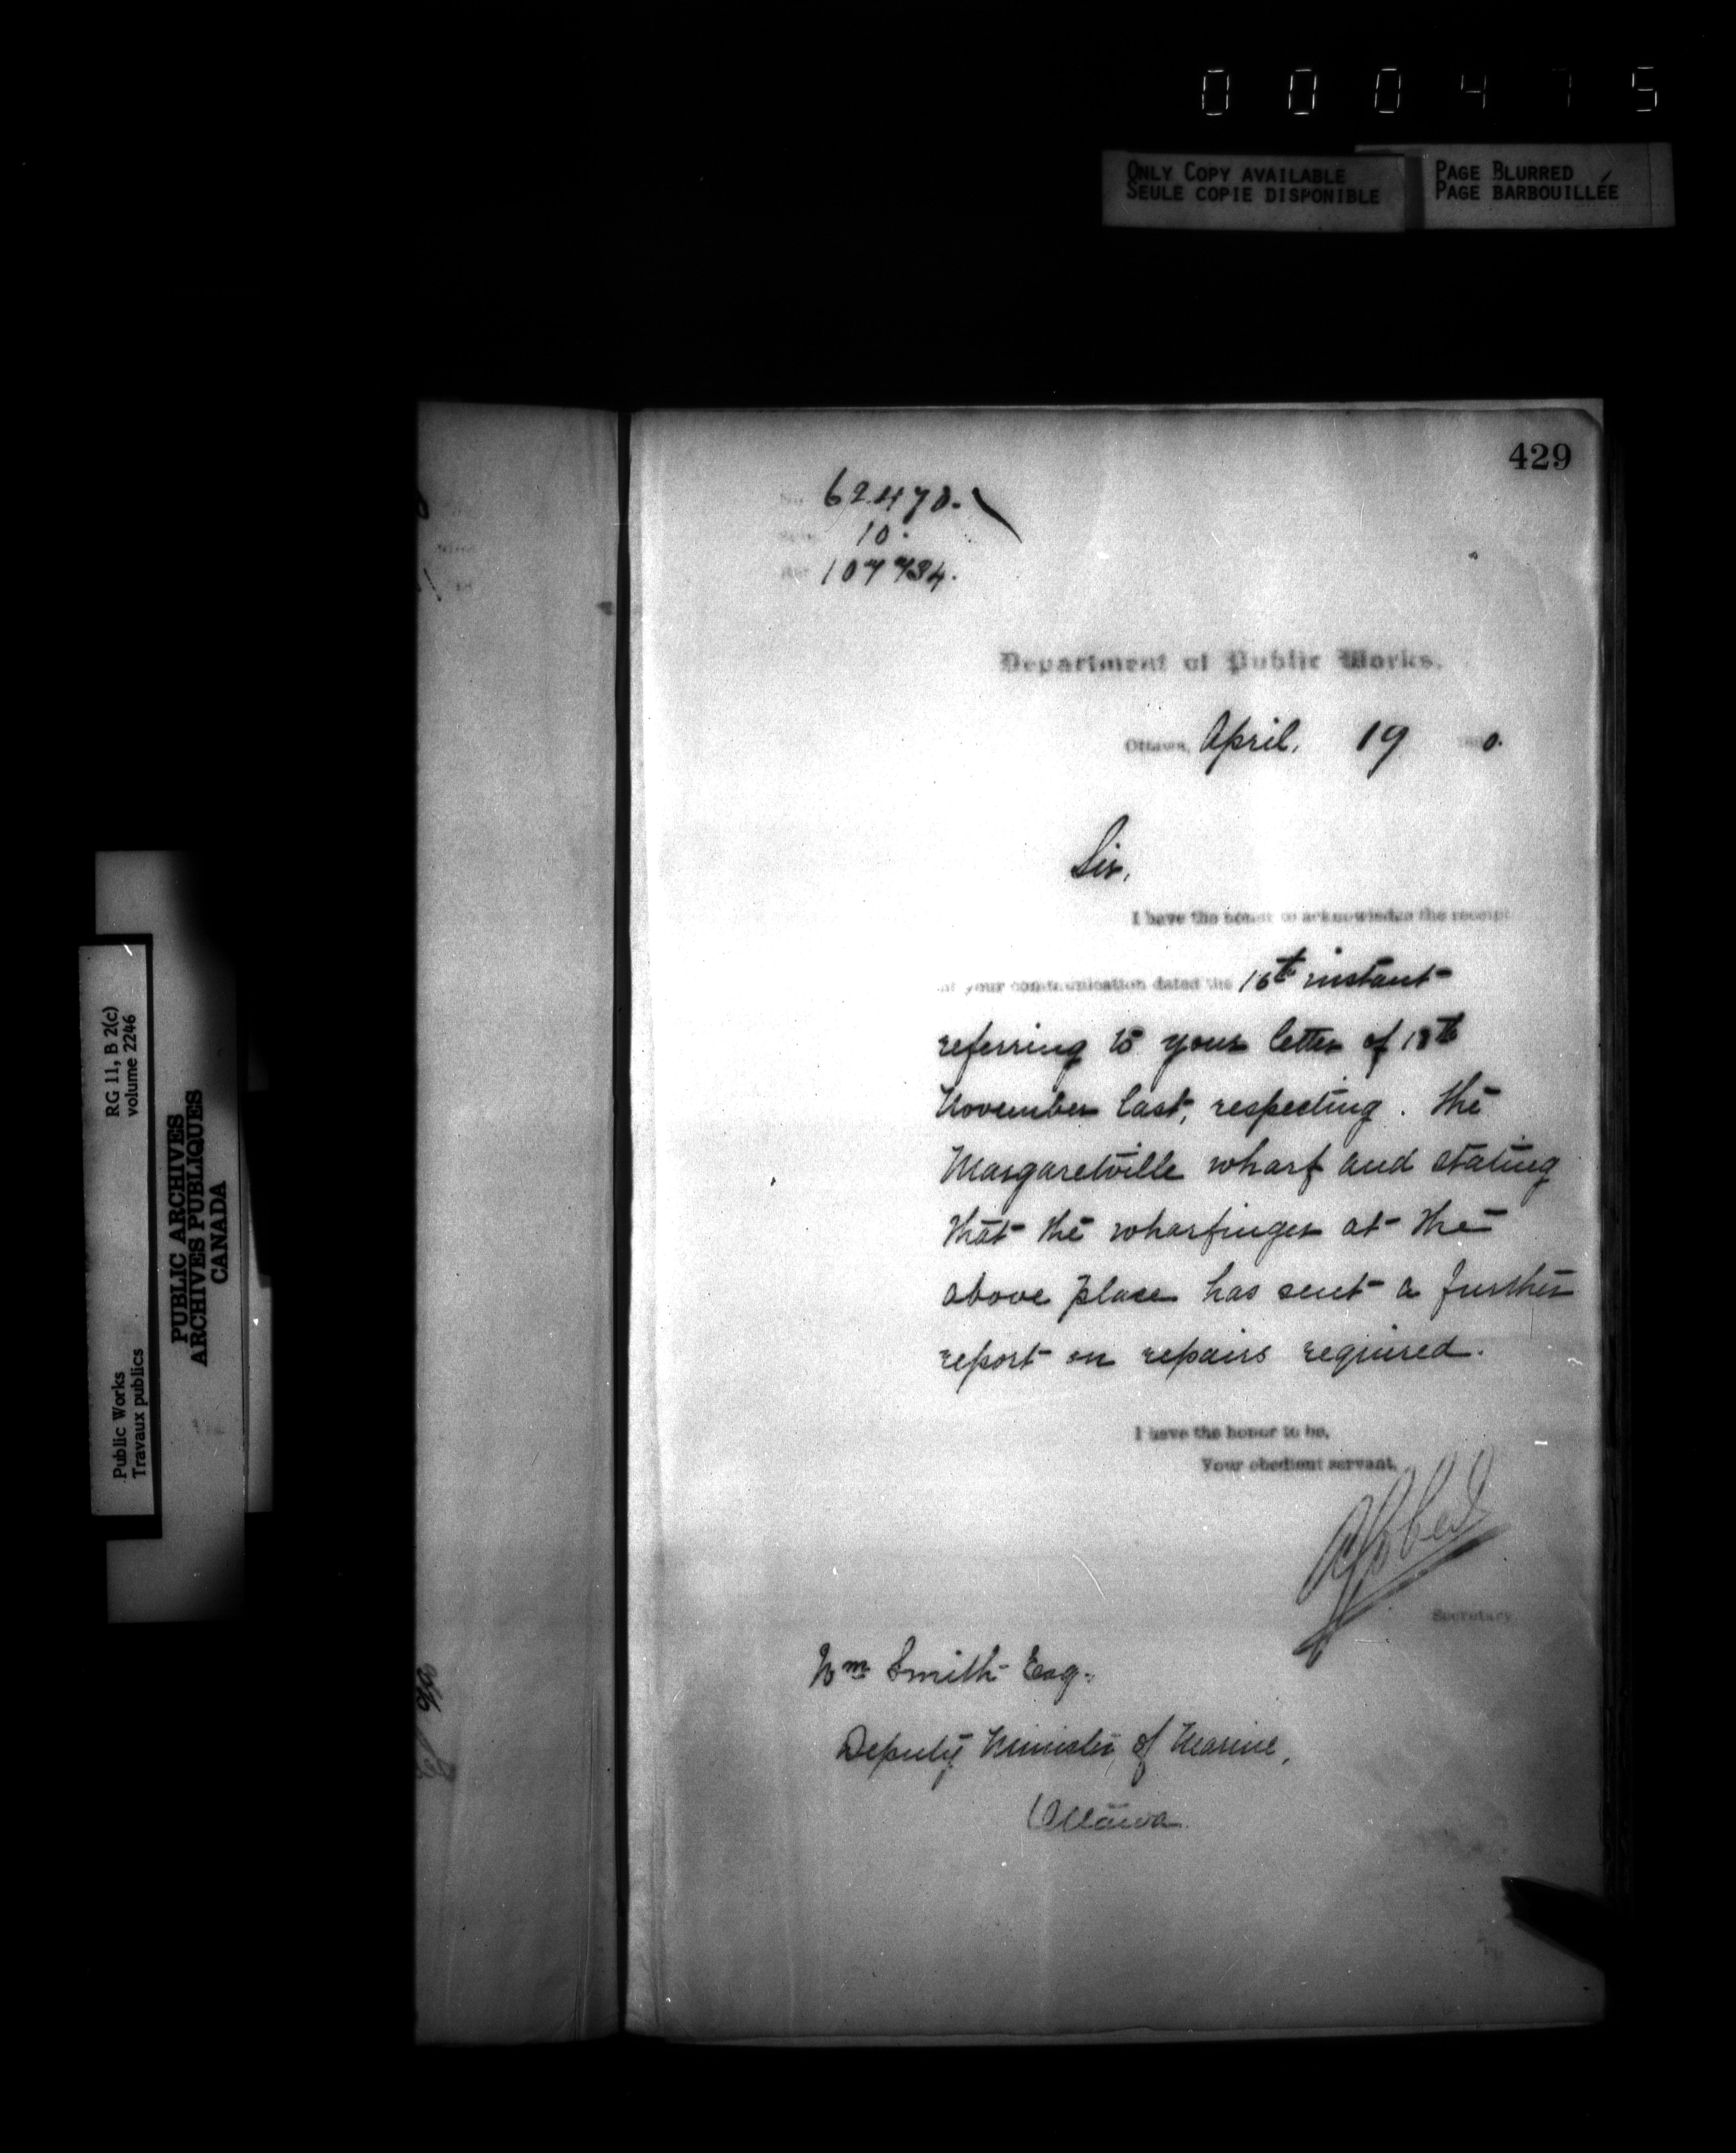 000475
ONLY COPY AVAILABLE
SEULE COPIE DISPONIBLE
PAGE BLURRED
PAGE BARBOUILLÉE
429
No. 62470.
10.
Ref. 107734.
Department of Public Works.
Ottawa, April, 19 1890.
Sir,
I have the honor to acknowledge the receipt
of your communication dated the 16th instant
referring to your letter of 18th
November last, respecting. the
Margaretville wharf and stating
that the wharfinger at the
above place has sent a further
report on repairs required.
I have the honor to be,
Your obedient servant,
Secretary
Wm Smith Esq.
Deputy Minister of Marine,
Ottawa.
Public Works
Travaux publics
RG 11, B 2(c)
volume 2246
PUBLIC ARCHIVES
ARCHIVES PUBLIQUES
CANADA